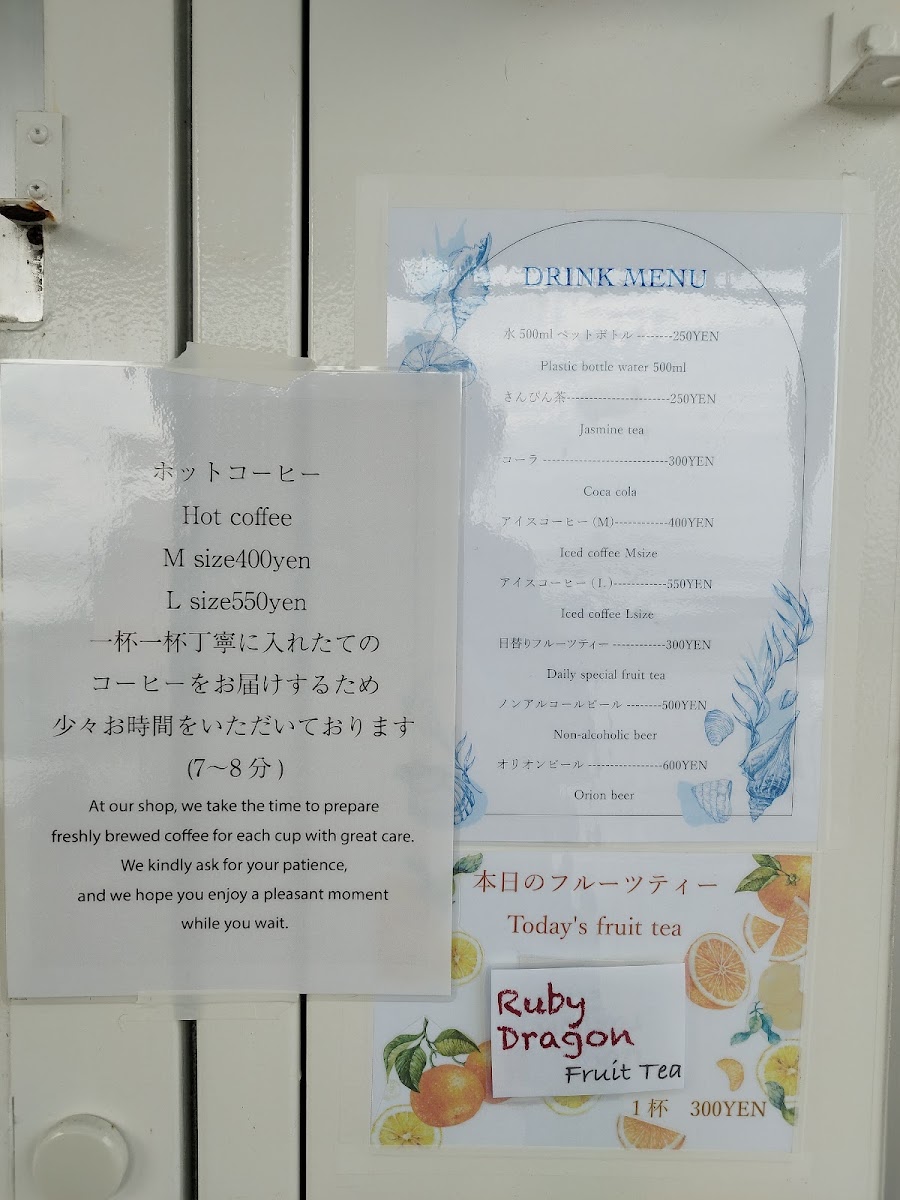 ホットコーヒー
Hot coffee
M size400yen
L size550yen
一杯一杯丁寧に入れたての
コーヒーをお届けするため
少々お時間をいただいております
(7～8分)
At our shop, we take the time to prepare
freshly brewed coffee for each cup with great care.
We kindly ask for your patience,
and we hope you enjoy a pleasant moment
while you wait.
DRINK MENU
水 500ml ペットボトル --------250YEN
Plastic bottle water 500ml
さんぴん茶-----------------------250YEN
Jasmine tea
コーラ ----------------------------300YEN
Coca cola
アイスコーヒー (M)------------400YEN
Iced coffee Msize
アイスコーヒー ( L )------------550YEN
Iced coffee Lsize
日替りフルーツティー ------------300YEN
Daily special fruit tea
ノンアルコールビール --------500YEN
Non-alcoholic beer
オリオンビール -----------------600YEN
Orion beer
本日のフルーツティー
Today's fruit tea
Ruby
Dragon
Fruit Tea
1杯 300YEN